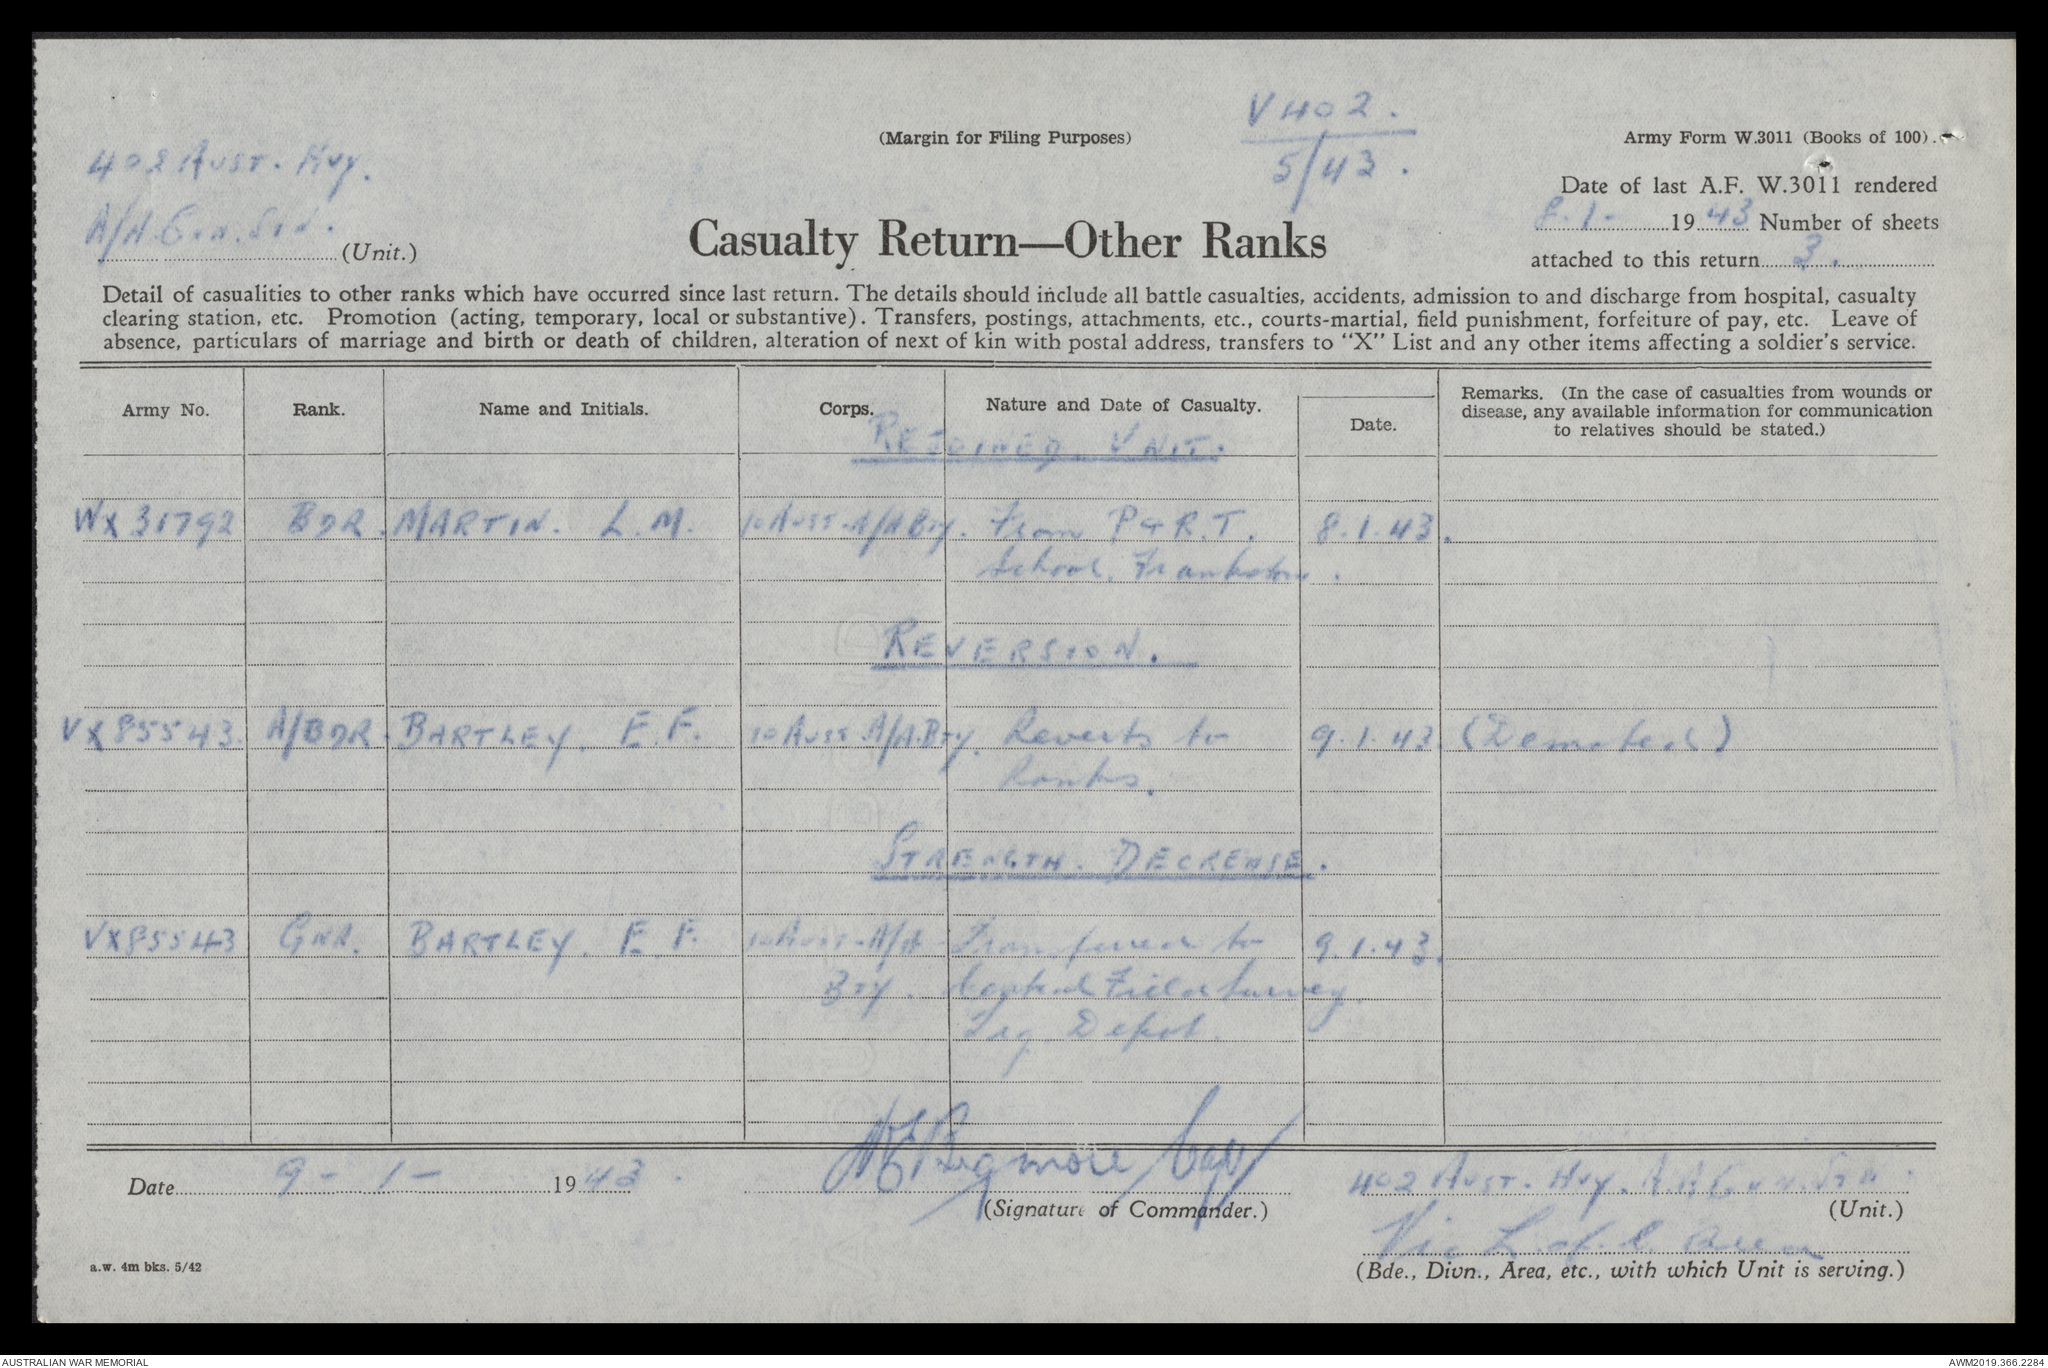 V402.
5/43.
(Margin for Filing Purposes)
Army Form W.3011 (Books of 100).
402 Aust. Hvy.
A/A Gun. Stn.
(Unit.)
Casualty Return—Other Ranks
Date of last A.F. W.3011 rendered
8-1- 1943 Number of sheets
attached to this return 3.
Detail of casualities to other ranks which have occurred since last return. The details should include all battle casualties, accidents, admission to and discharge from hospital, casualty
clearing station, etc. Promotion (acting, temporary, local or substantive). Transfers, postings, attachments, etc., courts-martial, field punishment, forfeiture of pay, etc. Leave of
absence, particulars of marriage and birth or death of children, alteration of next of kin with postal address, transfers to "X" List and any other items affecting a soldier's service.
Army No. Rank. Name and Initials. Corps. Nature and Date of Casualty. Date. Remarks. (In the case of casualties from wounds or
disease, any available information for communication
to relatives should be stated.)
REJOINED UNIT.
WX31792 BDR. MARTIN. L.M. 10 Aust. A/A Bty. From P & R.T. 8.1.43.
School, Frankston.
REVERSION.
VX85543. A/BDR. BARTLEY. E.F. 10 Aust. A/A. Bty. Reverts to 9.1.43. (Demoted)
Ranks.
STRENGTH. DECREASE.
VX85543 GNR. BARTLEY. E.F. 10 Aust. A/A Transferred to 9.1.43.
Bty. Central Field Survey
Trg. Depot.
Date 9-1- 1943. Capt
(Signature of Commander.)
402 Aust. Hvy. A.A Gun. Stn.
(Unit.)
Vic L. of C. Area
(Bde., Divn., Area, etc., with which Unit is serving.)
a.w. 4m bks. 5/42
AUSTRALIAN WAR MEMORIAL
AWM2019.366.2284